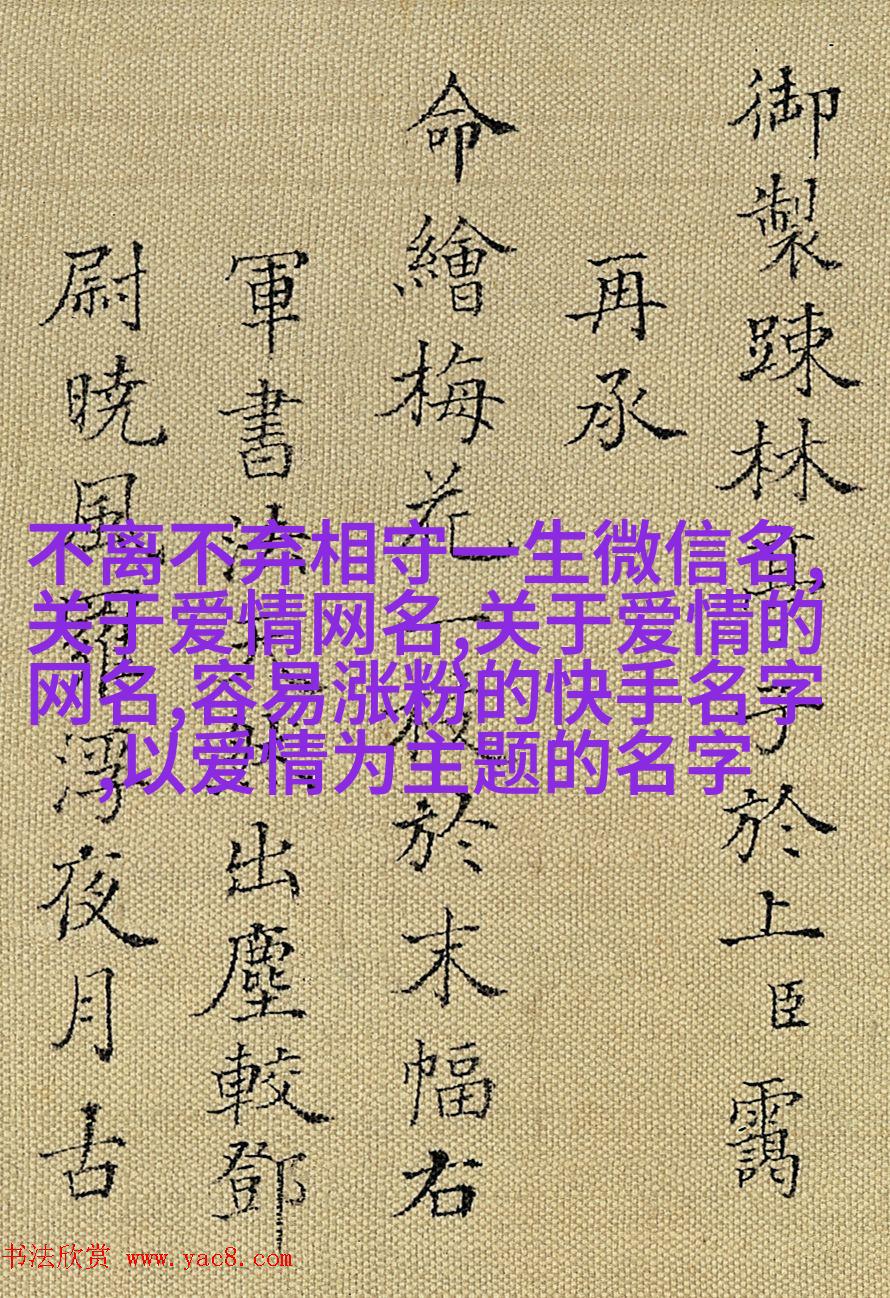 御製踈林五字於上臣靄
再承
命繪梅花一枝於末幅右
軍書法出塵較鄧
尉曉風羅浮夜月古
不离不弃相守一生微信名,
关于爱情网名,关于爱情的
网名,容易涨粉的快手名字
,以爱情为主题的名字
书法欣赏 www.yac8.com